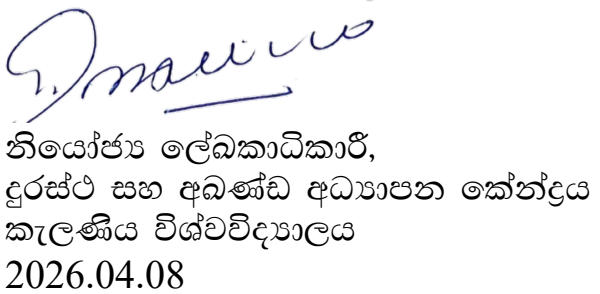 නියෝජ්‍ය ලේඛකාධිකාරී,
දුරස්ථ සහ අඛණ්ඩ අධ්‍යාපන කේන්ද්‍රය
කැලණිය විශ්වවිද්‍යාලය
2026.04.08